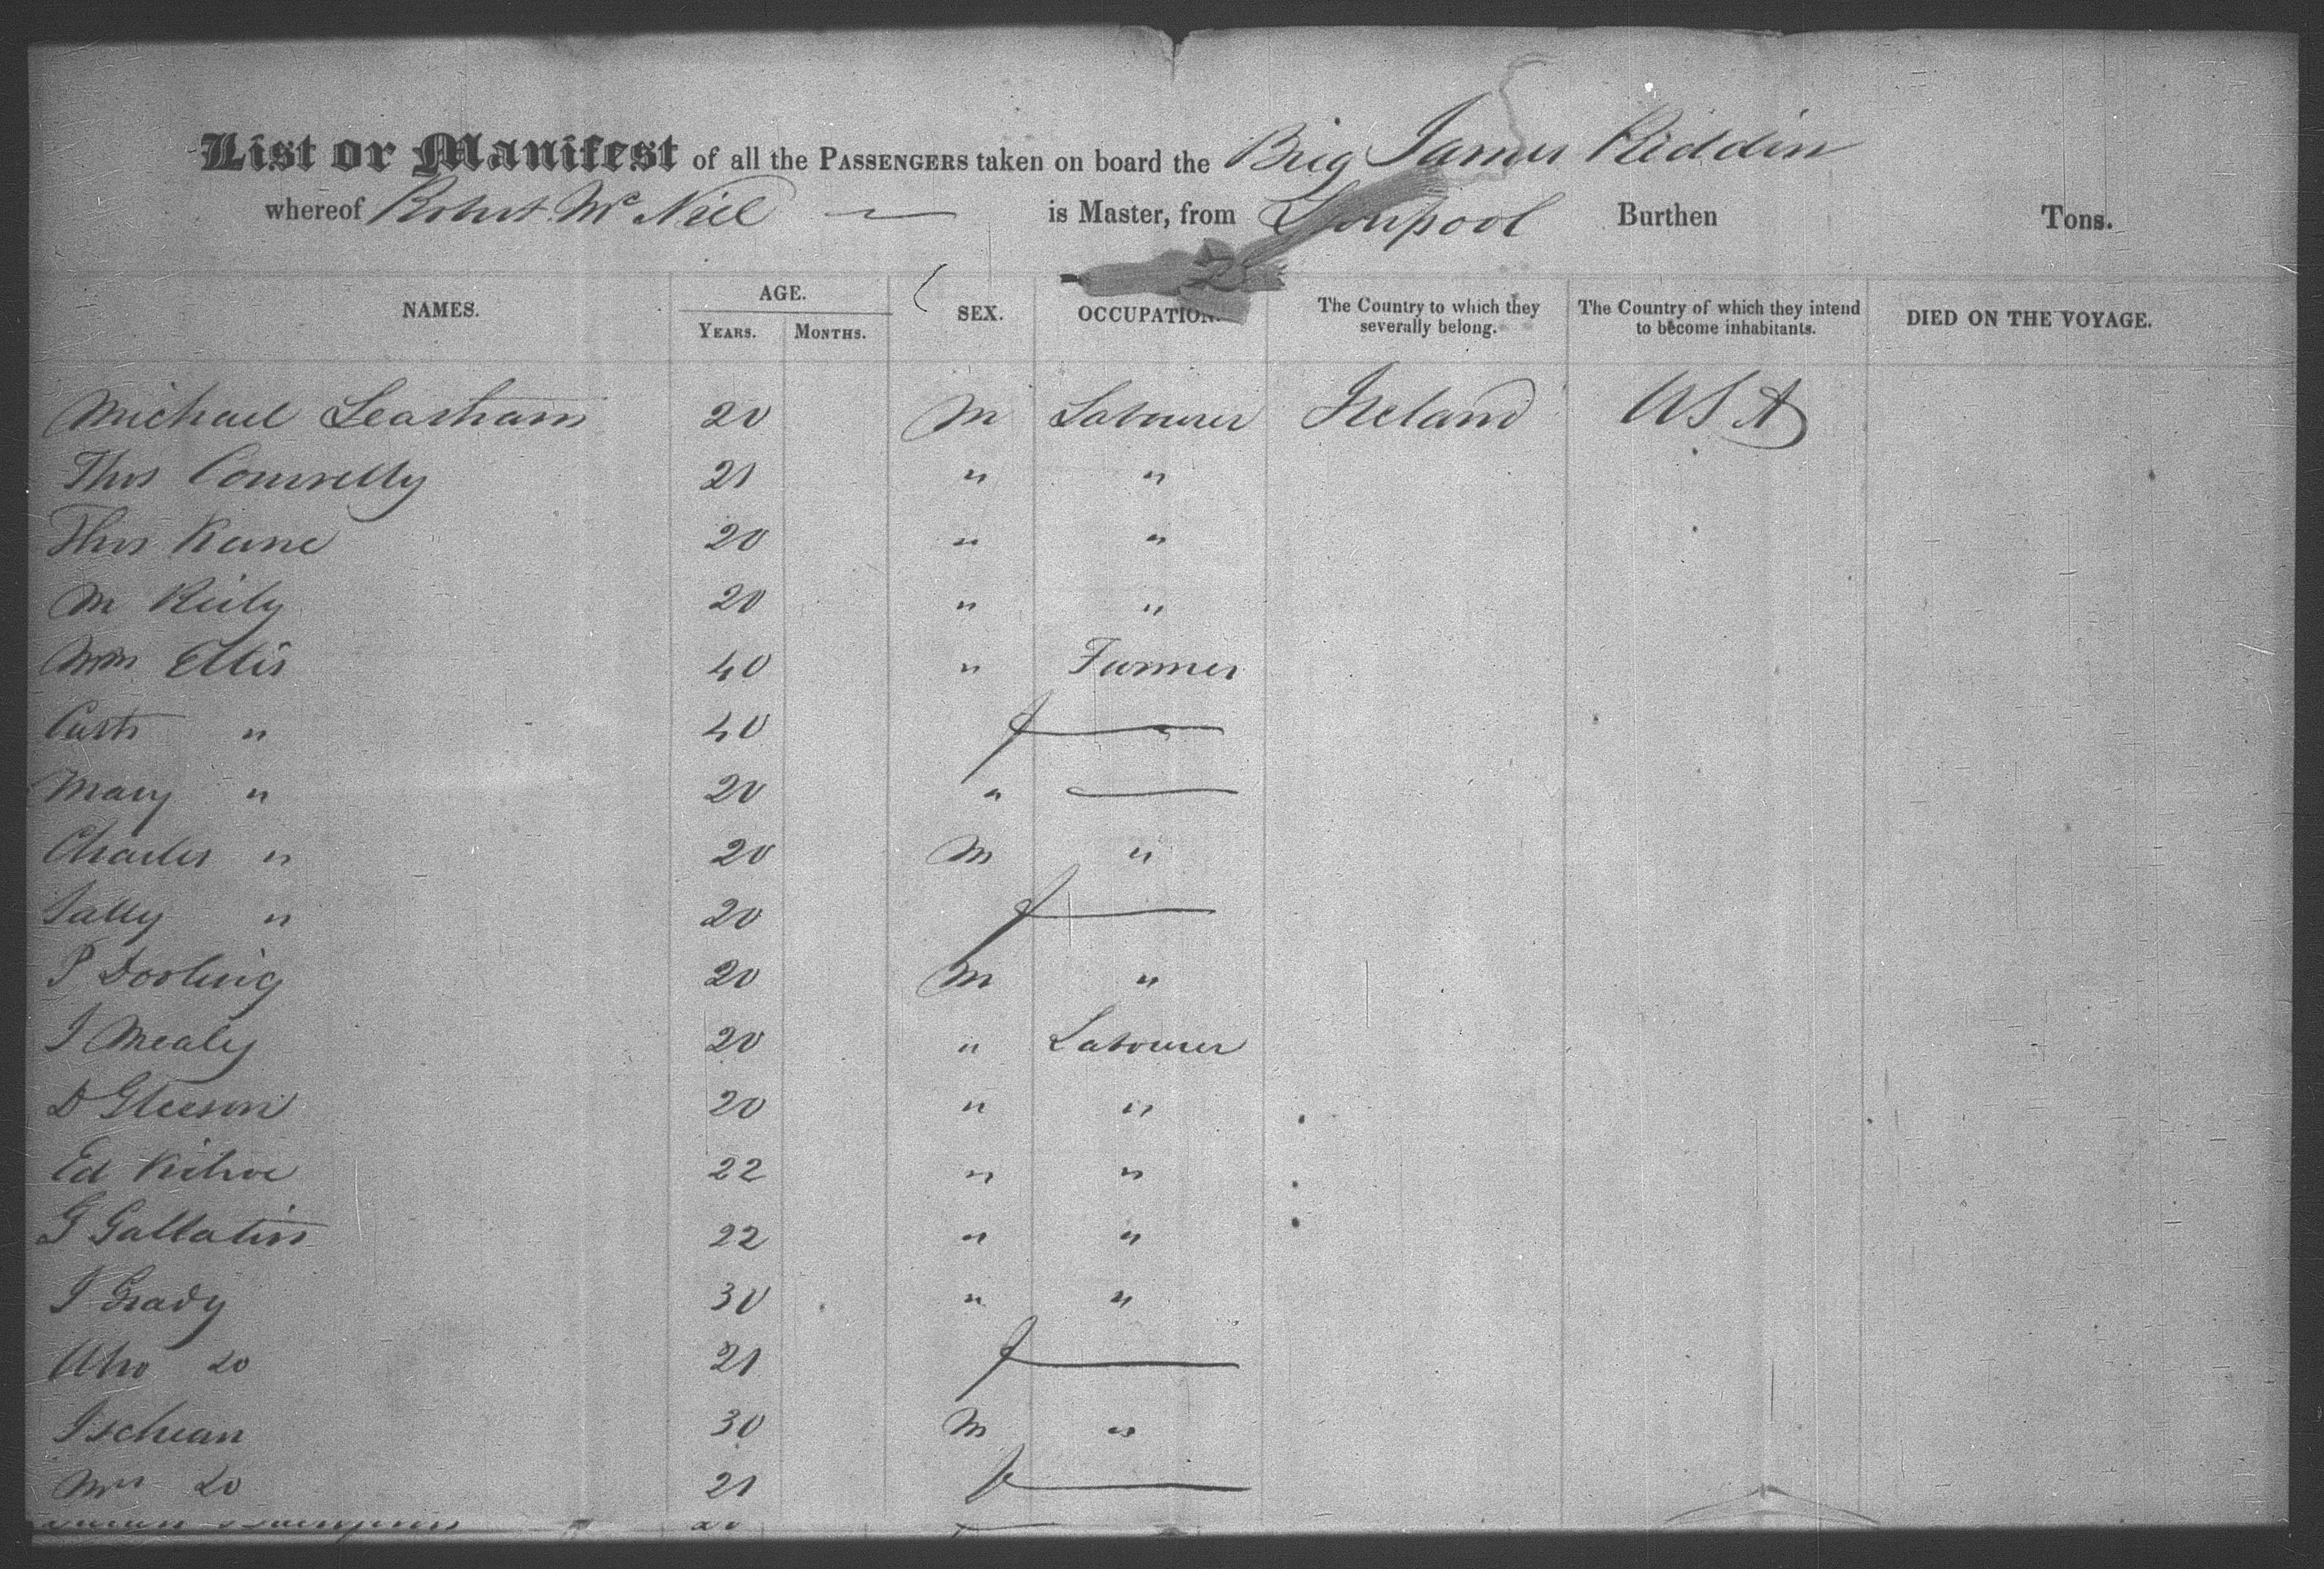 List or Manifest of all the PASSENGERS taken on board the Brig James Riddin
whereof Robert McNeil — is Master, from Liverpool Burthen Tons.
NAMES. AGE. SEX. OCCUPATION. The Country to which they severally belong. The Country of which they intend to become inhabitants. DIED ON THE VOYAGE.
YEARS. MONTHS.
Michael 20 M Labourer Ireland USA
Thos Connelly 21 " "
Thos Kane 20 " "
M Reily 20 " "
Wm Ellis 40 " Farmer
Cath " 40 f —
Mary " 20 " —
Charles " 20 M "
Sally " 20 f —
P Dooling 20 M "
J Mealy 20 " Labourer
D Gleeson 20 " "
Ed Kilroe 22 " "
G Gallatin 22 " "
J Grady 30 " "
do 21 f —
30 M "
Mrs do 21 f —